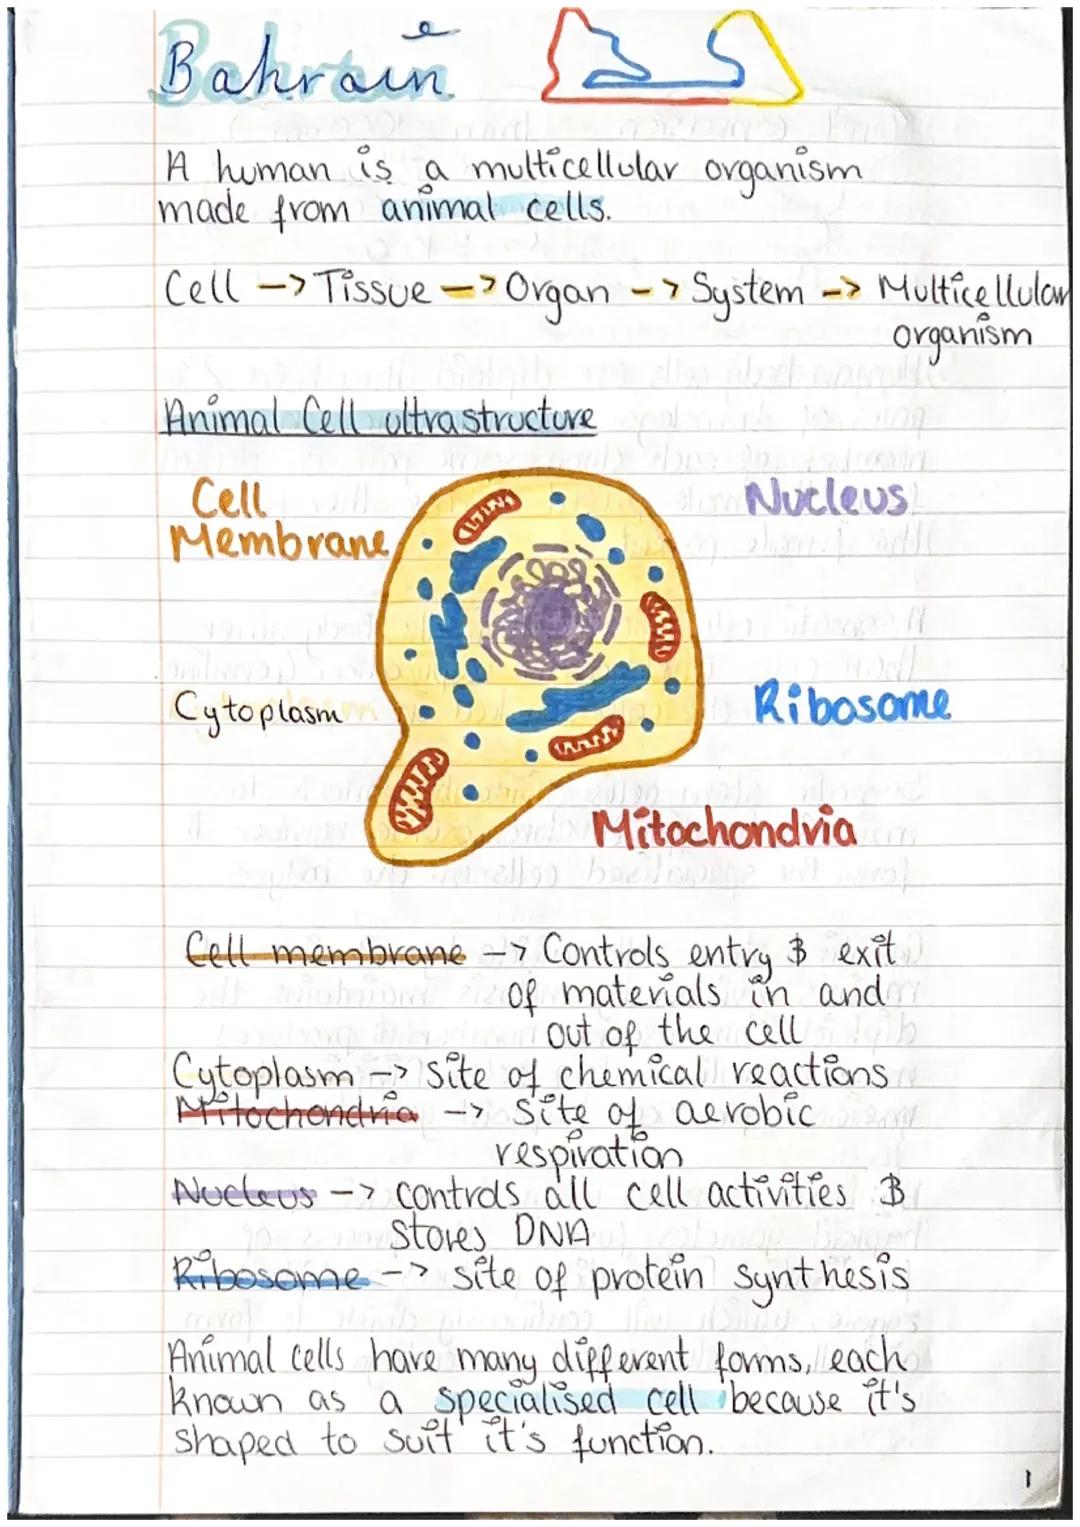 Bahrain
A human is a multicellular organism
made from animal cells.
Cell -> Tissue -> Organ -> System -> Multicellular
organism
Animal Cell ultrastructure
Cell
Membrane
Nucleus
Cytoplasm
Ribosome
Mitochondria
Cell membrane -> Controls entry & exit
of materials in and
out of the cell
Cytoplasm -> Site of chemical reactions
Mitochondria -> site of aerobic
respiration
Nucleus -> controls all cell activities &
stores DNA
Ribosome -> site of protein synthesis
Animal cells have many different forms, each
known as a specialised cell because it's
shaped to suit it's function.
1